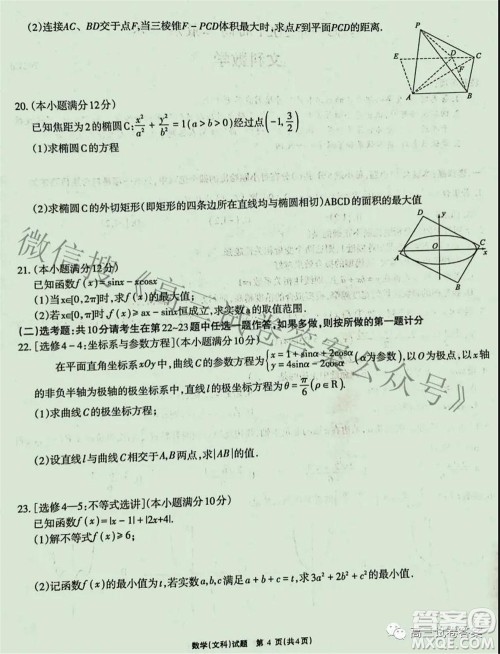 (2)连接AC、BD交于点F,当三棱锥F-PCD体积最大时,求点F到平面PCD的距离.
P
E
C
D
F
A
B
20.(本小题满分12分)
已知焦距为2的椭圆C:x²/a²+y²/b²=1(a>b>0)经过点(-1,3/2)
(1)求椭圆C的方程
(2)求椭圆C的外切矩形(即矩形的四条边所在直线均与椭圆相切)ABCD的面积的最大值
D
y
A
O
C
x
B
21.(本小题满分12分)
已知函数f(x)=sinx-xcosx
(1)当x∈[0,2π]时,求f(x)的最大值;
(2)若x∈[0,π],f(x)≥ax-sinx恒成立,求实数a的取值范围.
(二)选考题:共10分请考生在第22~23题中任选一题作答,如果多做,则按所做的第一题计分
22.[选修4-4:坐标系与参数方程](本小题满分10分)
在平面直角坐标系xOy中,曲线C的参数方程为{x=1+sinα+2cosα y=4sinα-2cosα(α为参数),以O为极点,以x轴
的非负半轴为极轴的极坐标系中,直线l的极坐标方程为θ=π/6(ρ∈R).
(1)求出曲线C的极坐标方程;
(2)设直线l与曲线C相交于A,B两点,求|AB|的值.
23.[选修4—5:不等式选讲](本小题满分10分)
已知函数f(x)=|x-1|+|2x+4|.
(1)解不等式f(x)≥6;
(2)记函数f(x)的最小值为t,若实数a,b,c满足a+b+c=t,求3a²+2b²+c²的最小值.
数学(文科)试题 第4页(共4页)
微信搜《高三试卷答案公众号》
高三试卷答案
答案圈